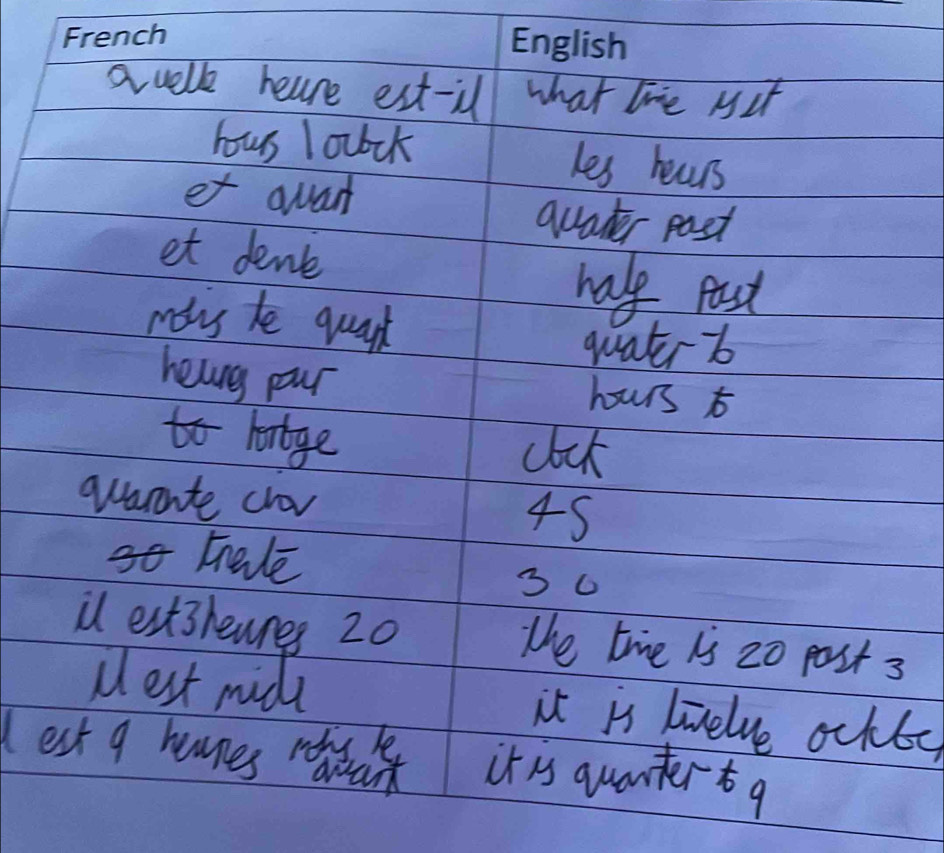 French English
Quelle heure est-il what time is it
hours / oclock les heurs
et quart quater past
et demie half past
moins le quart quater to
heures pour hours to
to horloge clock
quarante cinq 45
30 trente 30
il est 3 heures 20 the time is 20 past 3
il est midi it is twelve
il est 9 heures moins le quart it is quarter to 9